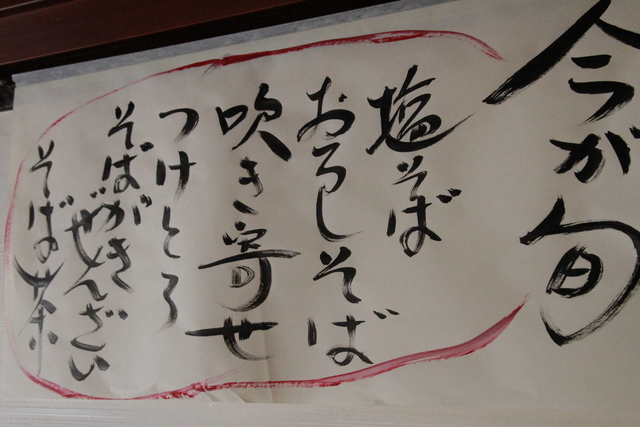 今が旬
塩そば
おろしそば
吹き寄せ
つけとろ
そばがきぜんざい
そば茶